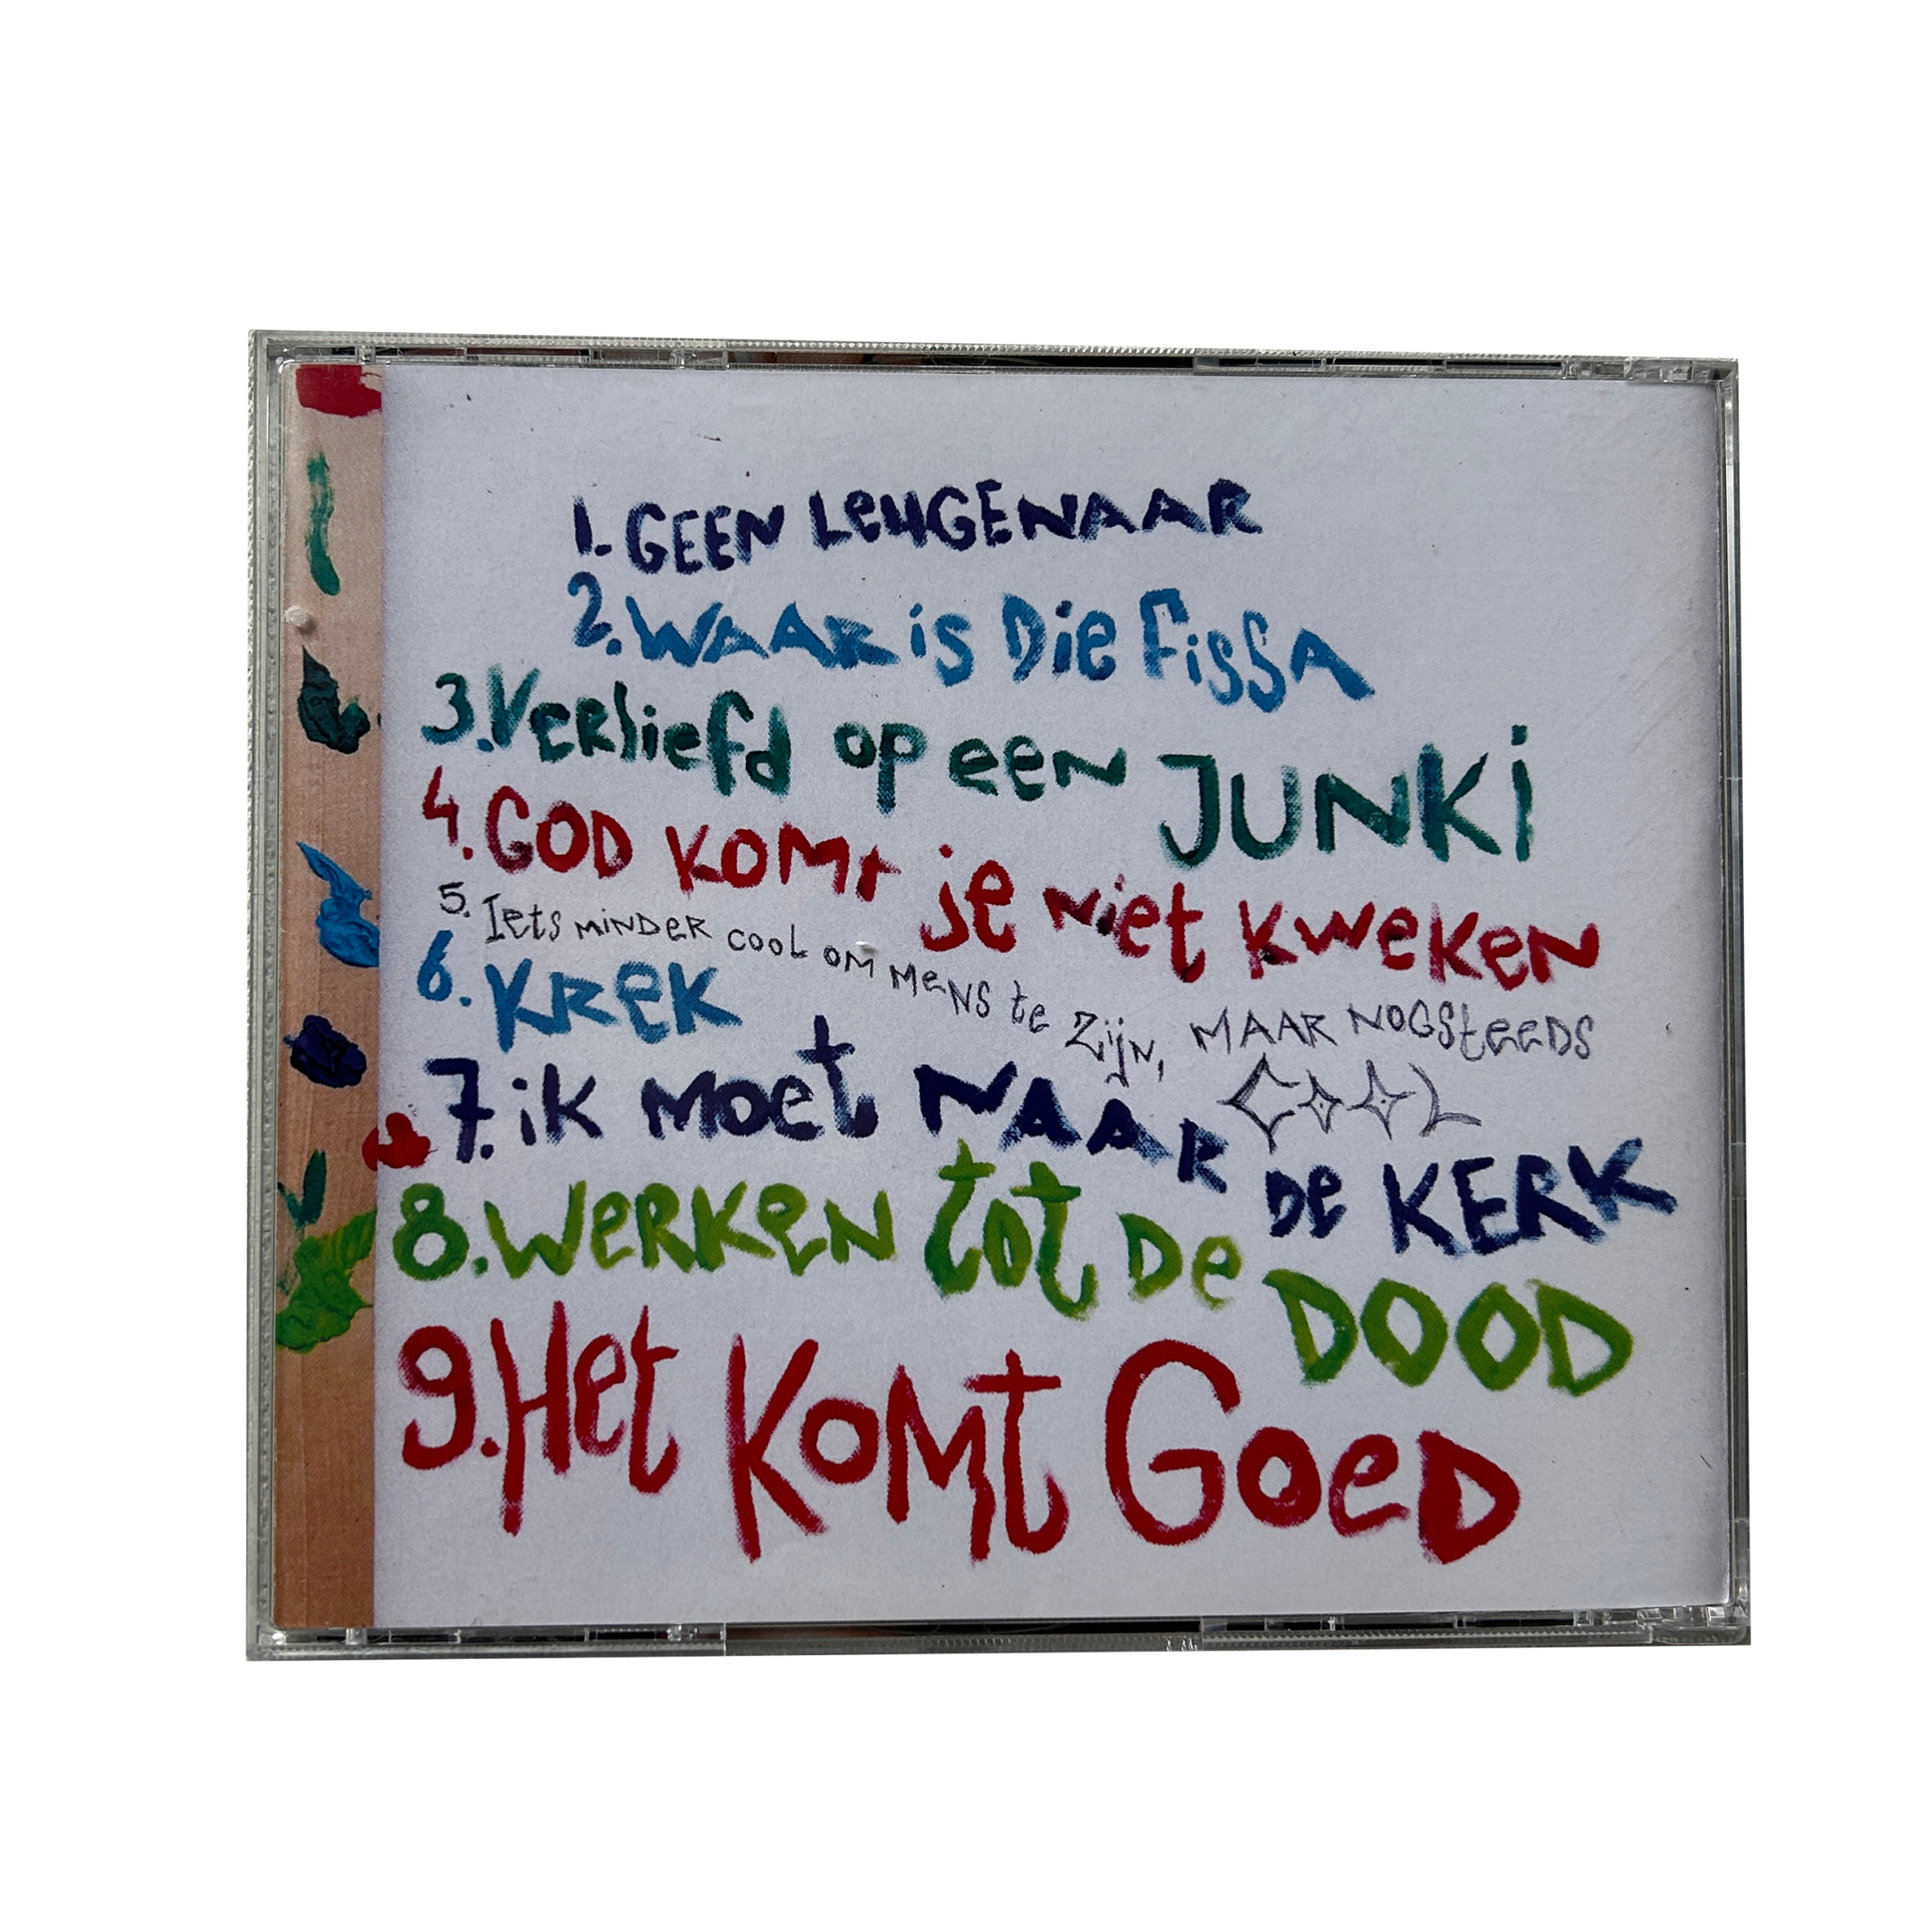 1. GEEN LeuGENAAR
2. WAAR is Die Fissa
3. Verliefd op een JUNKi
4. GOD KOMt je niet kweken
5. Iets MiNDeR COOL OM MeNS te Zijn, MAAR NOGSteeDS COOL
6. KReK
7. ik Moet NAAR De KERK
8. WeRKeN tot De DOOD
9. Het KOMt GoeD